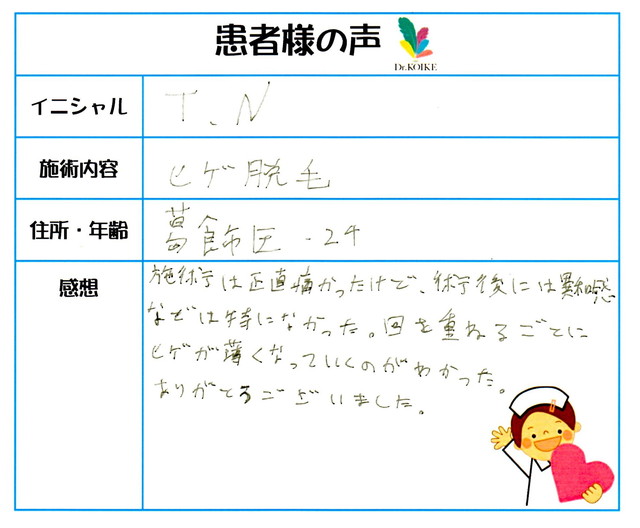 患者様の声
Dr.KOIKE
イニシャル
T.N
施術内容
ヒゲ脱毛
住所・年齢
葛飾区・24
感想
施術は正直痛かったけど、術後には異和感
などは特になかった。回を重ねるごとに
ヒゲが薄くなっていくのがわかった。
ありがとうございました。